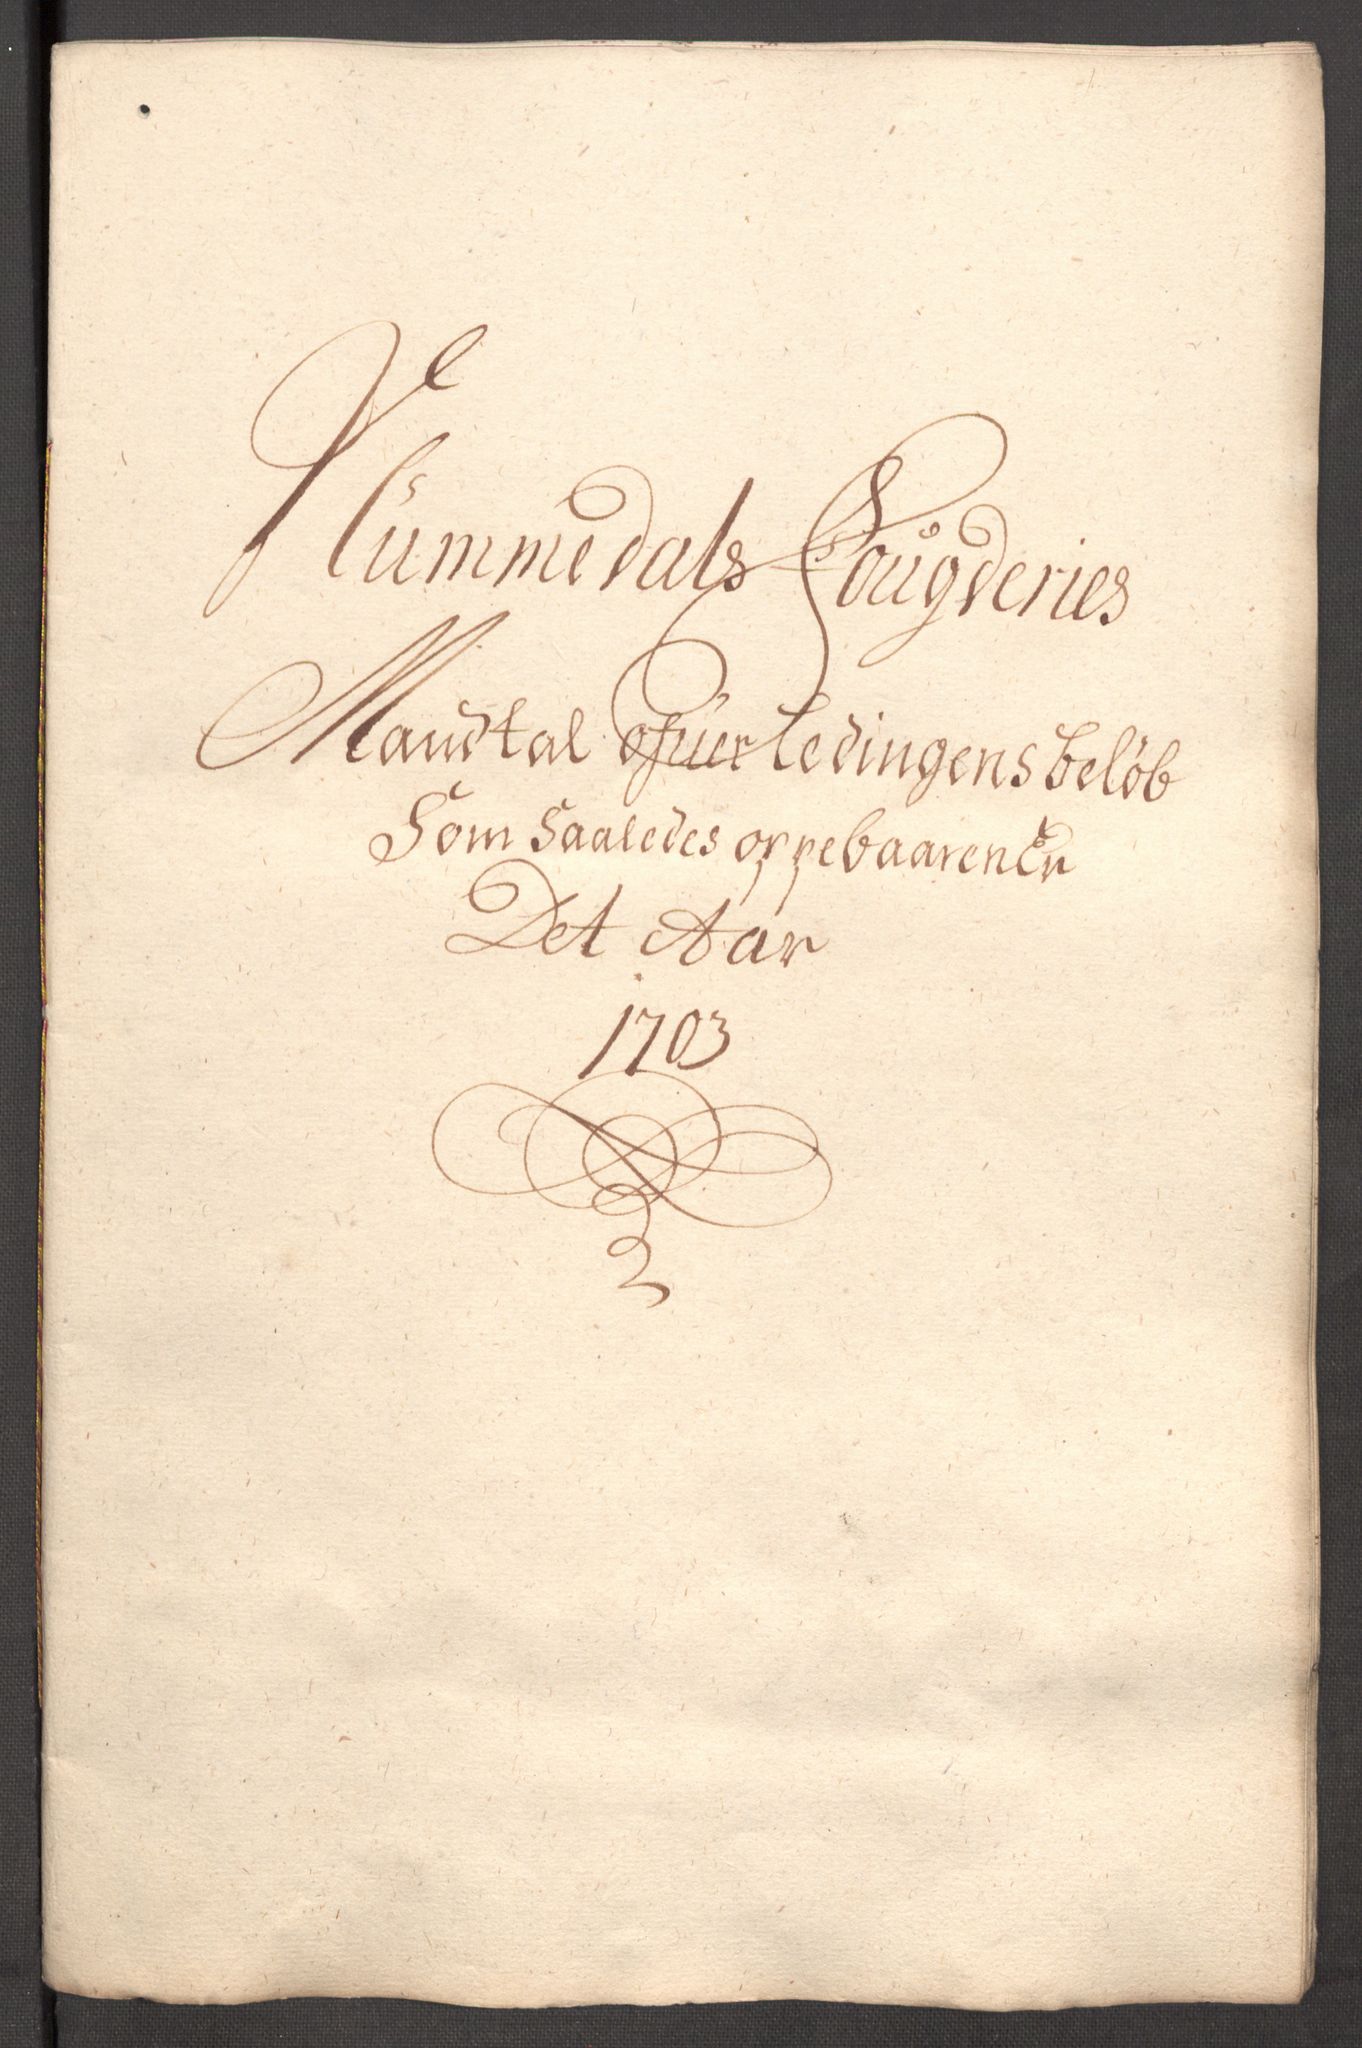 Nummedals Fougderies
Mandtal ofuer Ledingens beløb
Som Saaledes oppebaaren Er
Det Aar
1703